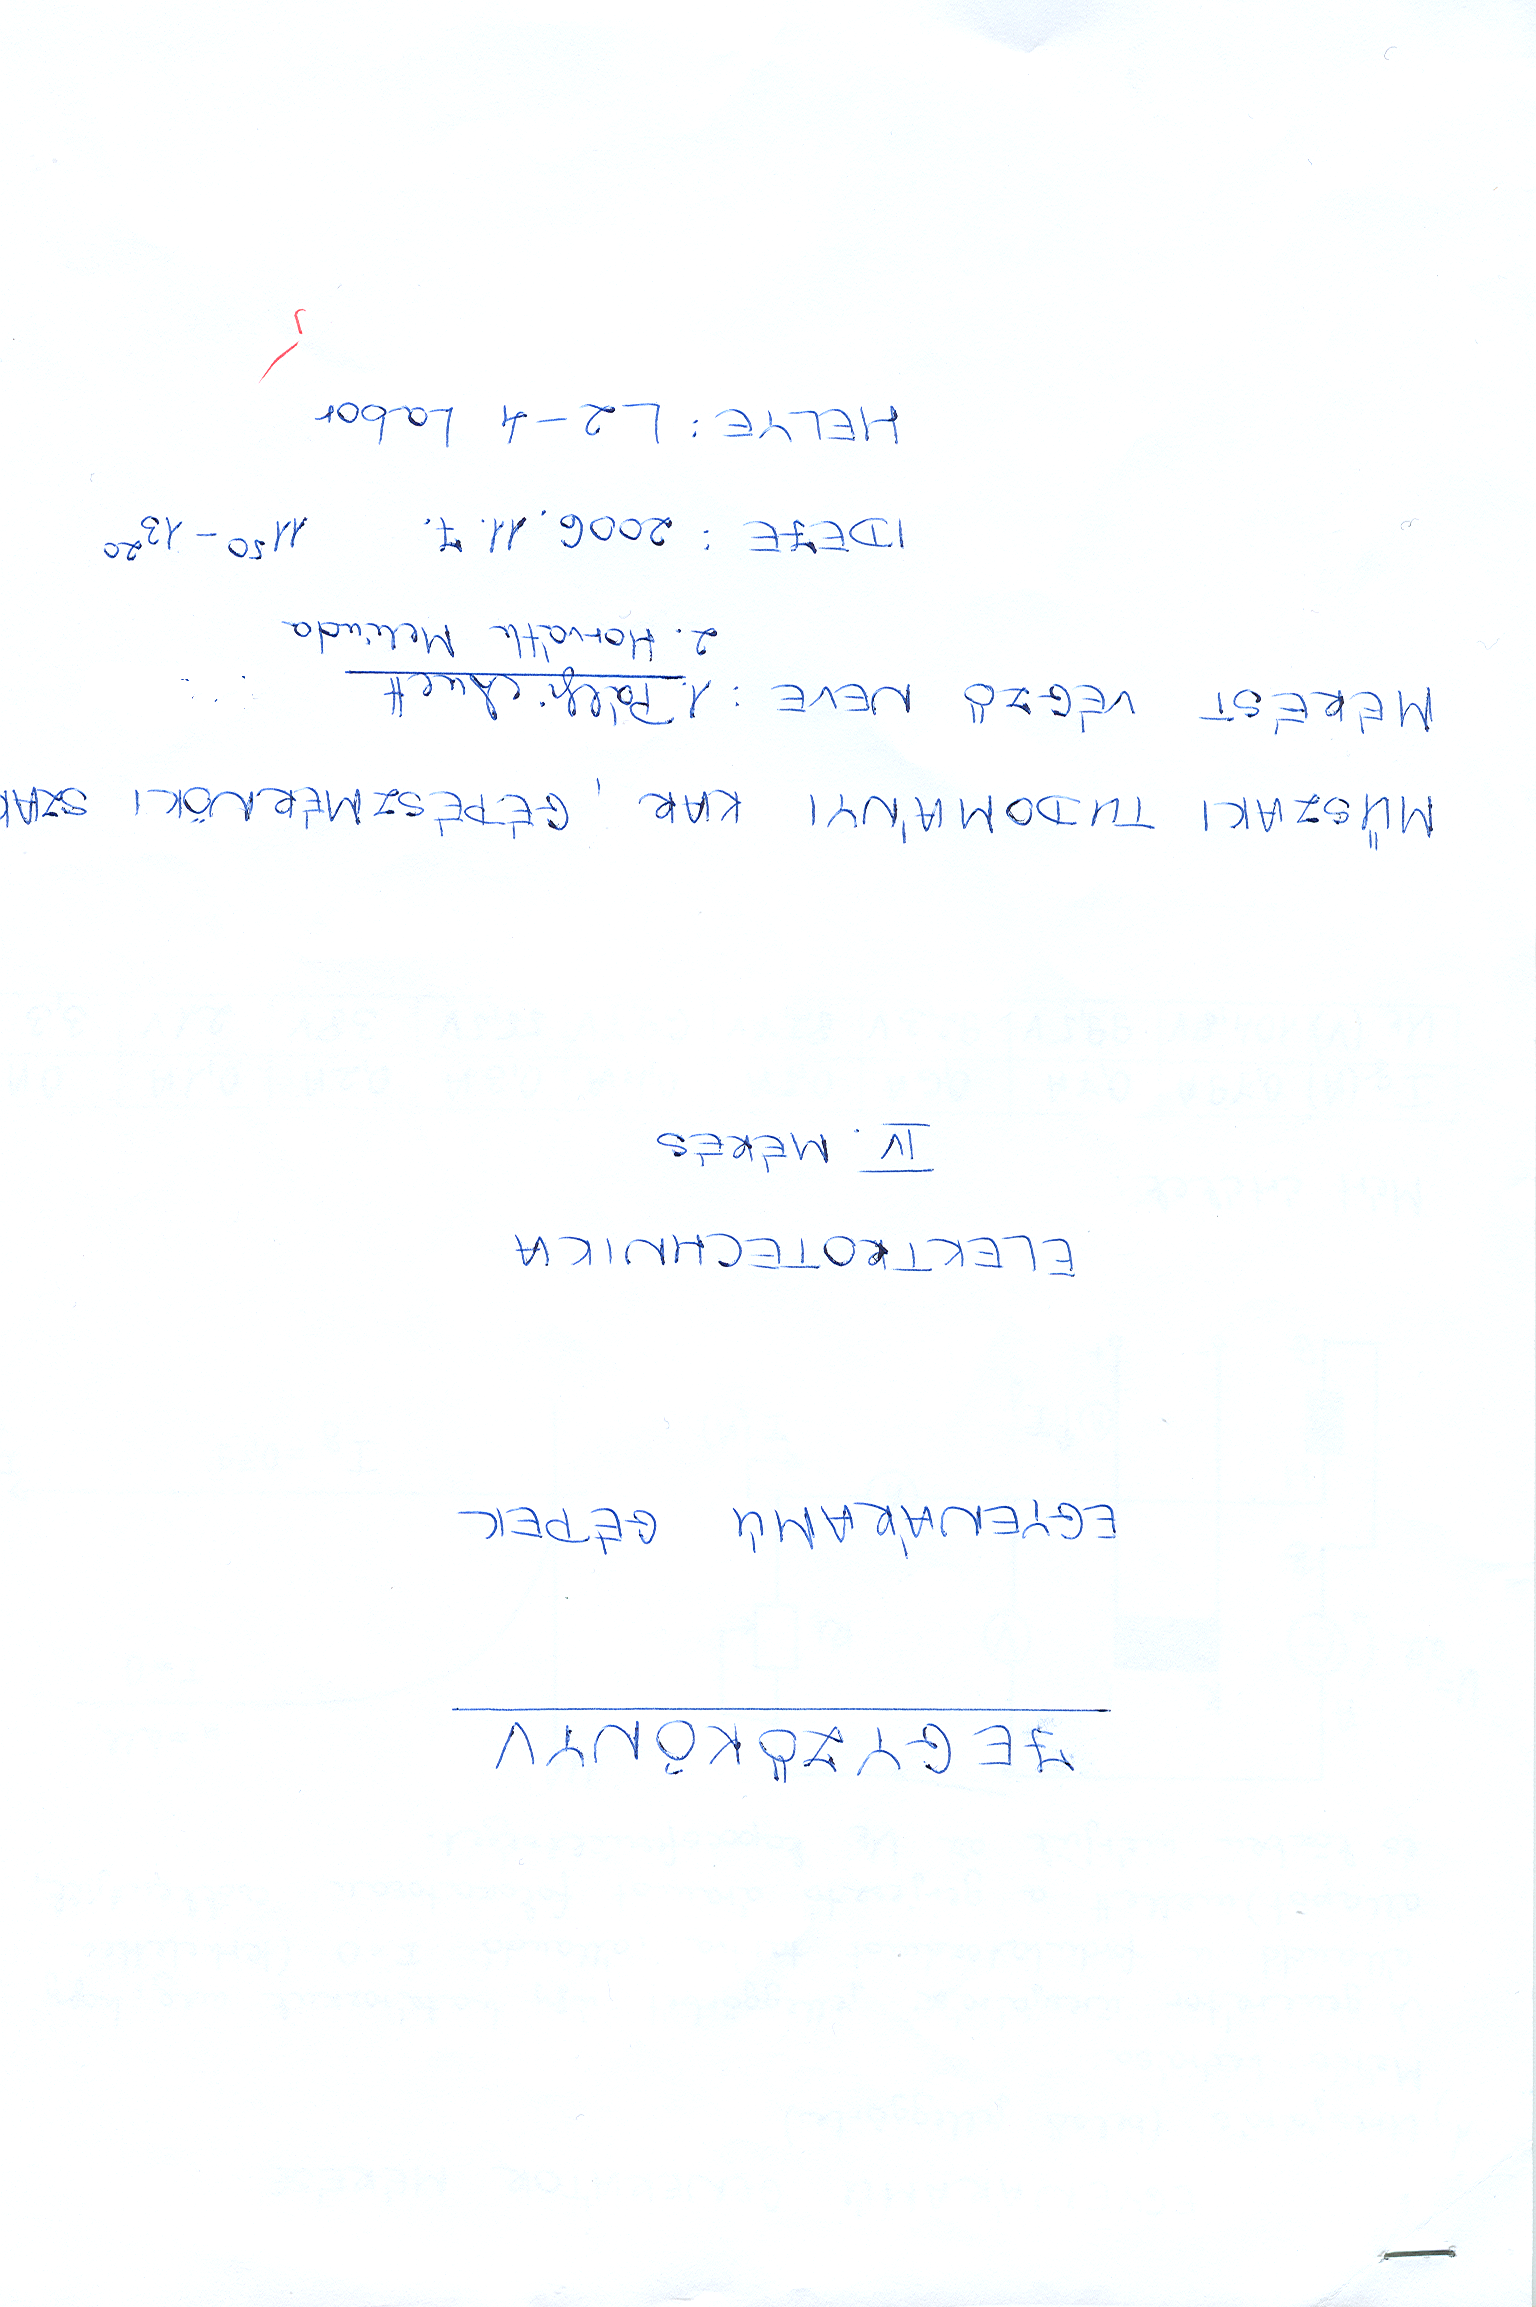 JEGYZŐKÖNYV
EGYENÁRAMÚ GÉPEK
ELEKTROTECHNIKA
IV. MÉRÉS
MŰSZAKI TUDOMÁNYI KAR, GÉPÉSZMÉRNÖKI SZAK
MÉRÉST VÉGZŐ NEVE: 1. Pálfi
2. Horváth Melinda
IDEJE: 2006. 11. 7. 11⁵⁰ - 13²⁰
HELYE: L2-4 Labor